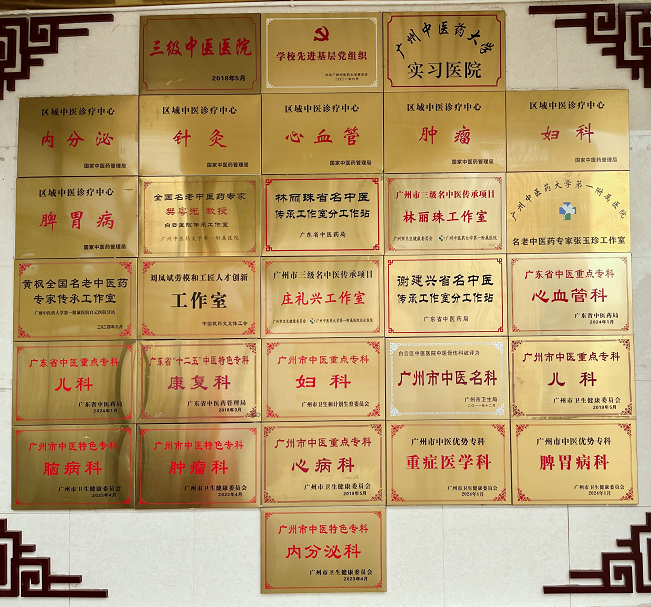 三级中医医院
2018年5月
学校先进基层党组织
广州中医药大学
实习医院
区域中医诊疗中心
内分泌
国家中医药管理局
区域中医诊疗中心
针灸
国家中医药管理局
区域中医诊疗中心
心血管
国家中医药管理局
区域中医诊疗中心
肿瘤
国家中医药管理局
区域中医诊疗中心
妇科
国家中医药管理局
区域中医诊疗中心
脾胃病
国家中医药管理局
全国名老中医药专家
教授
白云医院传承工作室
广州中医药大学第一附属医院
林丽珠省名中医
传承工作室分工作站
广东省中医药局
广州市三级名中医传承项目
林丽珠工作室
广州市卫生健康委员会
广州中医药大学第一附属医院
广州中医药大学第一附属医院
名老中医药专家张玉珍工作室
黄枫全国名老中医药
专家传承工作室
广州中医药大学第一附属医院白云医院分站
二〇二四年九月
刘凤斌劳模和工匠人才创新
工作室
中国教科文卫体工会
广州市三级名中医传承项目
庄礼兴工作室
广州市卫生健康委员会
广州中医药大学第一附属医院
谢建兴省名中医
传承工作室分工作站
广东省中医药局
广东省中医重点专科
心血管科
广东省中医药局
2024年1月
广东省中医重点专科
儿科
广东省中医药局
2024年1月
广东省“十二五”中医特色专科
康复科
广东省中医药管理局
2018年3月
广州市中医重点专科
妇科
广州市卫生和计划生育委员会
白云区中医医院中医骨伤科被评为
广州市中医名科
广州市卫生局
二〇一一年十二月
广州市中医重点专科
儿科
广州市卫生健康委员会
2019年5月
广州市中医特色专科
脑病科
广州市卫生健康委员会
2023年4月
广州市中医特色专科
肿瘤科
广州市卫生健康委员会
2023年4月
广州市中医重点专科
心病科
广州市卫生健康委员会
2019年5月
广州市中医优势专科
重症医学科
广州市卫生健康委员会
2024年1月
广州市中医优势专科
脾胃病科
广州市卫生健康委员会
2024年1月
广州市中医特色专科
内分泌科
广州市卫生健康委员会
2023年4月